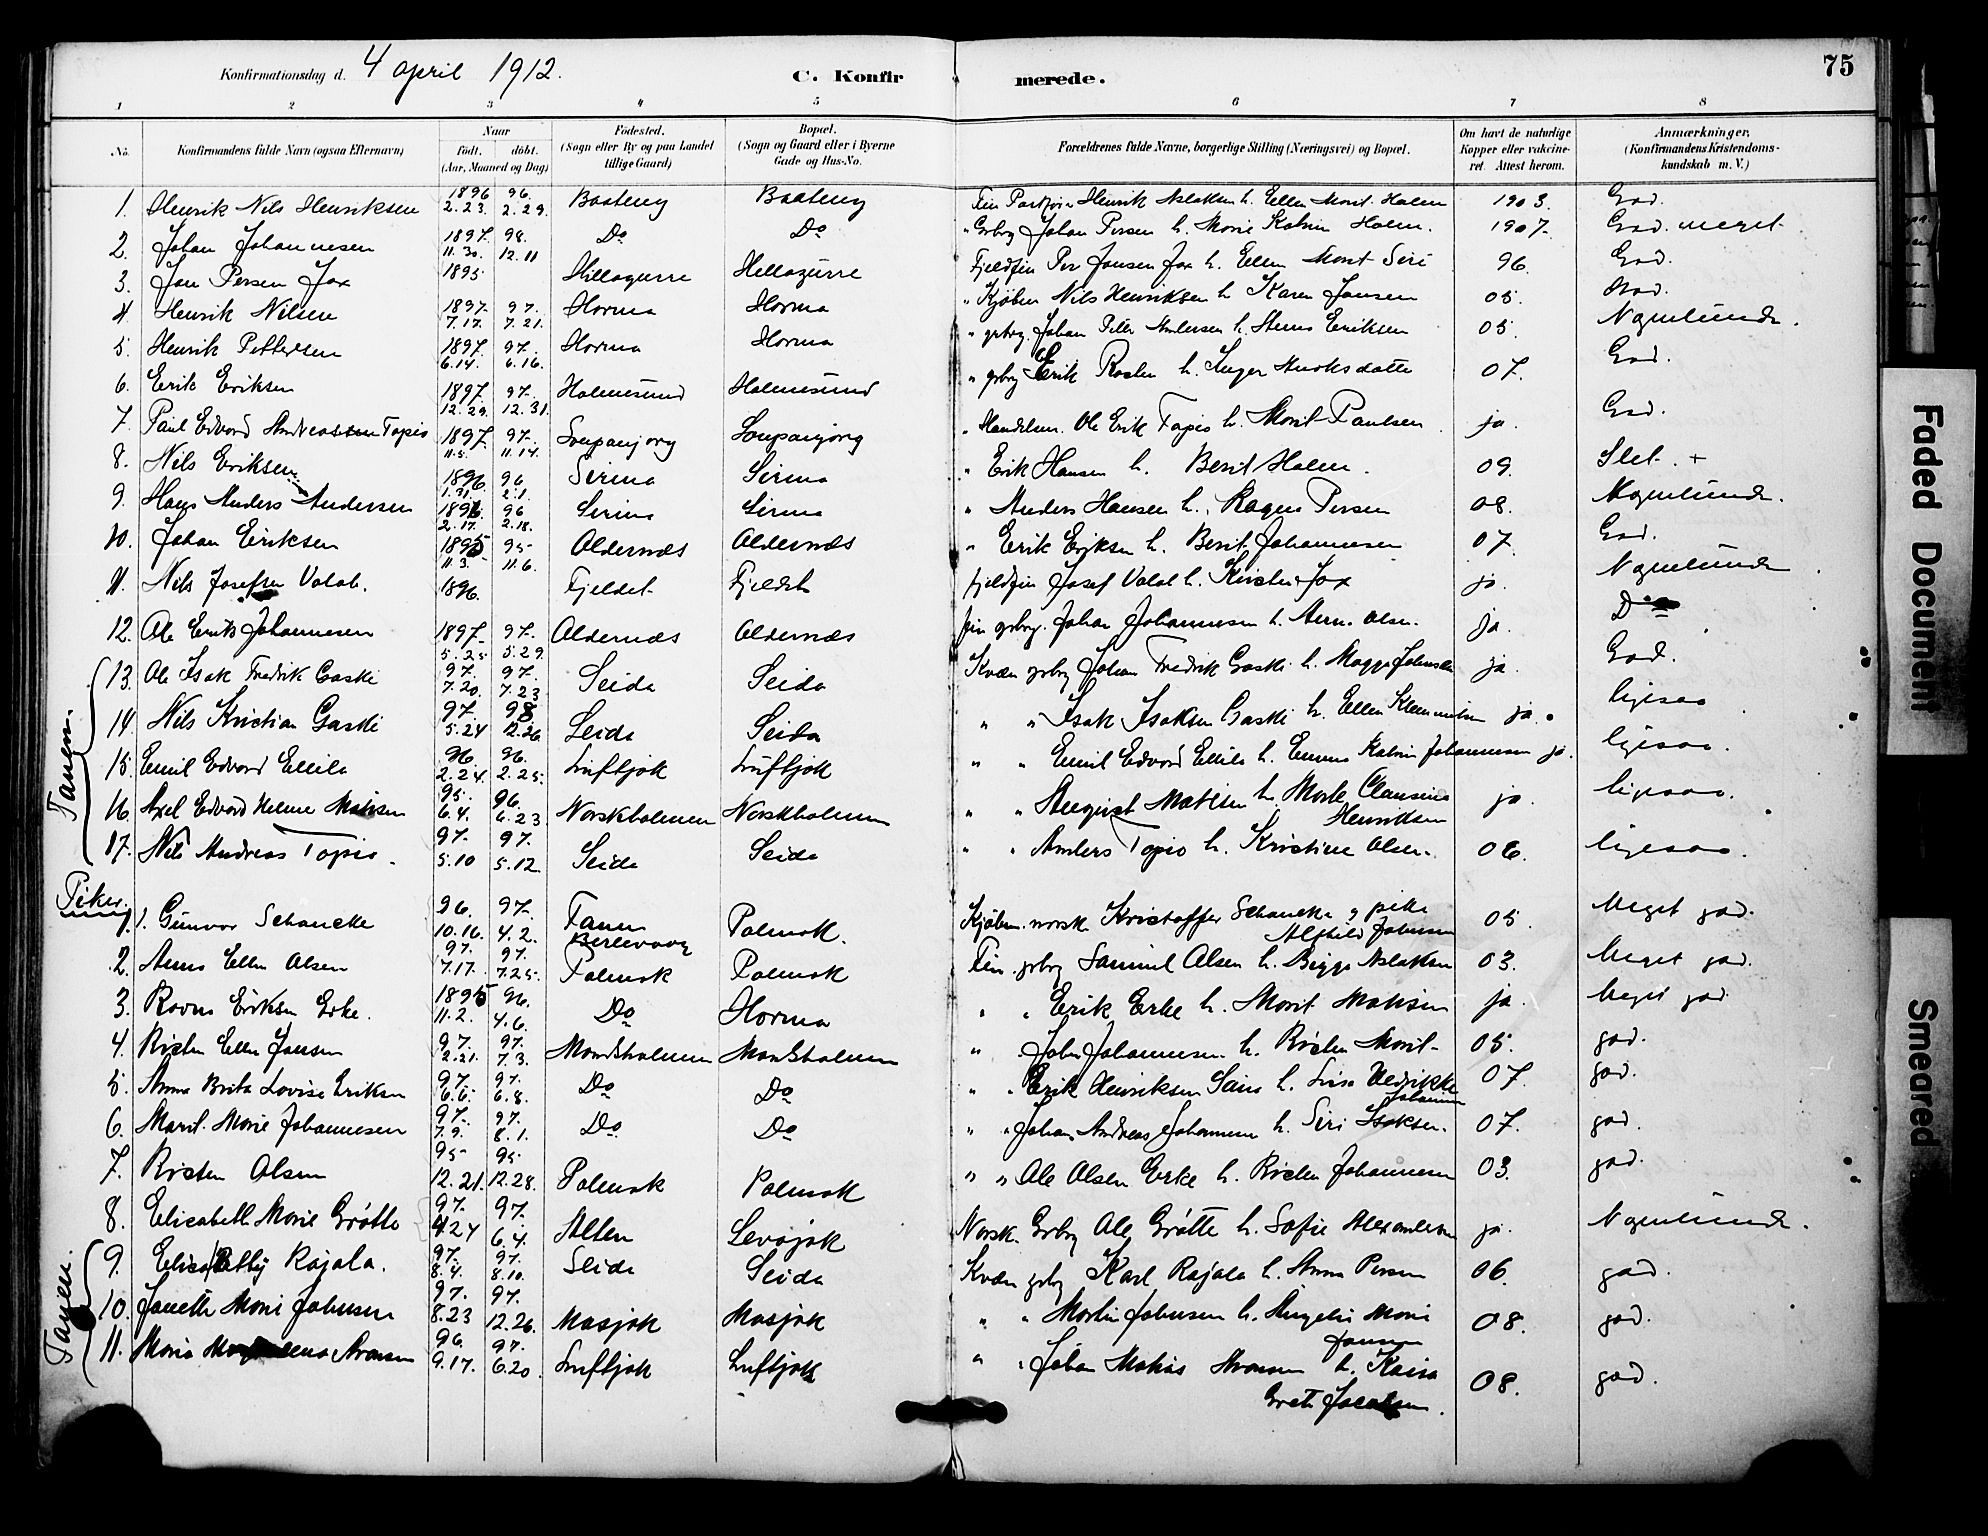 Konfirmationsdag d. 4 april 1912.
C. Konfirmerede.
75
1 2 3 4 5 6 7 8
No. Konfirmandens fulde Navn (ogsaa Efternavn) Naar født. døbt. (Aar, Maaned og Dag) Fødested. (Sogn eller By og paa Landet tillige Gaard) Bopæl. (Sogn og Gaard eller i Byerne Gade og Hus-No. Forældrenes fulde Navne, borgerlige Stilling (Næringsvei) og Bopæl. Om havt de naturlige Kopper eller vaccineret. Attest herom. Anmærkninger. (Konfirmandens Kristendomskundskab m. V.)
1. Henrik Nils Henriksen 1896 2.23. 96. 2.29. Baateng Baateng Henrik Aslaksen h. Ellen Marit Halen 1903. God.
2. Johan Johannesen 1897. 11.30. 98. 12.11 Do Do Johan Persen h. Marie Katrin Halen. 1907. God. meget
3. Jon Persen Jox 1895 Hillagurre Hillagurre Fjeldfin Per Jonsen Jox h. Ellen Marit Siri 96. God.
4. Henrik Nilsen 1897. 7.17. 97. 7.21. Horma Horma " Kjøbm Nils Henriksen h. Karen Jansen 05. God.
5. Henrik Pettersen 1897. 6.14. 97. 6.16. Horma Horma " grbrg. Johan Peter Andersen h. Anna Eriksen 05. Nogenlunde.
6. Erik Eriksen 1897. 12.29. 97. 12.31. Holmesund Holmesund " grbrg Erik h. Inger 07. God.
7. Paul Edvard Andreassen Tapio 1897. 11.5. 97. 11.14. Soupanjarg Soupanjarg " Handelsm. Ole Erik Tapio h. Marit Paulsen ja. God.
8. Nils Eriksen 1896. 1.31. 96 2.1. Sirma Sirma " Erik Hansen h. Berit Halen. 09. Slet. +
9. Hans Anders Andersen 1896. 2.17. 96 2.18. Sirma Sirma " Anders Hansen h. Ragna Persen 08. Nogenlunde.
10. Johan Eriksen 1895 11.3. 95 11.6. Aldernæs Aldernæs " Erik Eriksen h. Berit Johannesen 07. God.
11. Nils Josefsen Valab. 1896. Fjeldet Fjeldet fjeldfin Josef Valab h. Kirsten Jox ja. Nogenlunde.
12. Ole Eriks Johannesen 1897. 5.25 97. 5.29. Aldernæs Aldernæs fin grbrg. Johan Johannesen h. Olsen. ja. Do
Tanen.
13. Ole Isak Fredrik Gaski 97. 7.20. 97. 7.23 Seida Seida Kvæn grbrg Johan Fredrik Gaski h. Magga Johnsen ja. God.
14 Nils Kristian Gaski 97. 5.24 98 12.26. Seida Seida " " Isak Isaksen Gaski h. Ellen Klemmetsen ja. ligesaa
15. Emil Edvard Ellila 96 2.24. 96. 2.25. Luftjok Luftjok " " Emil Edvard Ellila h. Emma Katrin Johannesen ja. ligesaa.
16. Axel Edvard Helmer Matisen 95. 6.4. 96. 6.23 Norskholmen Norskholmen " " Matisen h. Clausine Henriksen ja. ligesaa.
17. Nils Andreas Tapio. 97. 5.10 97. 5.12. Seida Seida " " Anders Tapio h. Kristine Olsen. 06. ligesaa.
Piker.
1. Gunvor Schancke 96. 10.16. 97. 4.2. Tanen Berlevaag Polmak. Kjøbm. norsk Kristoffer Schancke og pike Alfhild Johnsen 05. Meget god.
2. Anna Ellen Olsen 97. 7.17. 97. 7.25. Polmak Polmak Fin. grbrg Samuel Olsen h. Bigga Aslaksen 03. Meget god.
3. Ravna Eriksen Erke. 1895 11.2. 96. 4.6. Do Horma " " Erik Erke h. Marit Matisen ja. Meget god.
4. Risten Ellen Jansen 97. 2.21. 97. 7.3. Mandsholmen Mandsholmen " John Johannesen h. Risten Marit 05. god.
5. Anna Brita Lovise Eriksen 97. 6.6. 97. 6.8. Do Do " Erik Henriksen h. Hedvikke Johannesen 07. god.
6. Marit Marie Johannesen 97. 7.9. 97. 8.1. Do Do " " Johan Andreas Johannesen h. Siri Isaksen. 07. god.
7. Risten Olsen 95 12.21. 95 12.28. Polmak Polmak " " Ole Olsen Erke h. Risten Johannesen 03. god.
8. Elisabeth Marie Grøtte 97. 4.24 97. 6.4. Alten Levajok Norsk. Grbrg Ole Grøtte h. Sofie Alexandersen ja. Nogenlunde.
Tanen.
9. Rajala. 97. 8.4. 97. 8.10. Seida Seida Kvæn grbrg Karl Rajala h. Anna Persen 06. god.
10. Janette Marie Johnsen 97. 8.23 97. 12.26. Masjok Masjok " " Martin Johnsen h. Marie Jansen 08. god.
11. Maria Aronsen 96. 9.17. 97. 6.20 Luftjok Luftjok " " Johan Matias Aronsen h. Kaisa Grete Jacobsen. 08. god.
Faded Document
Smeared